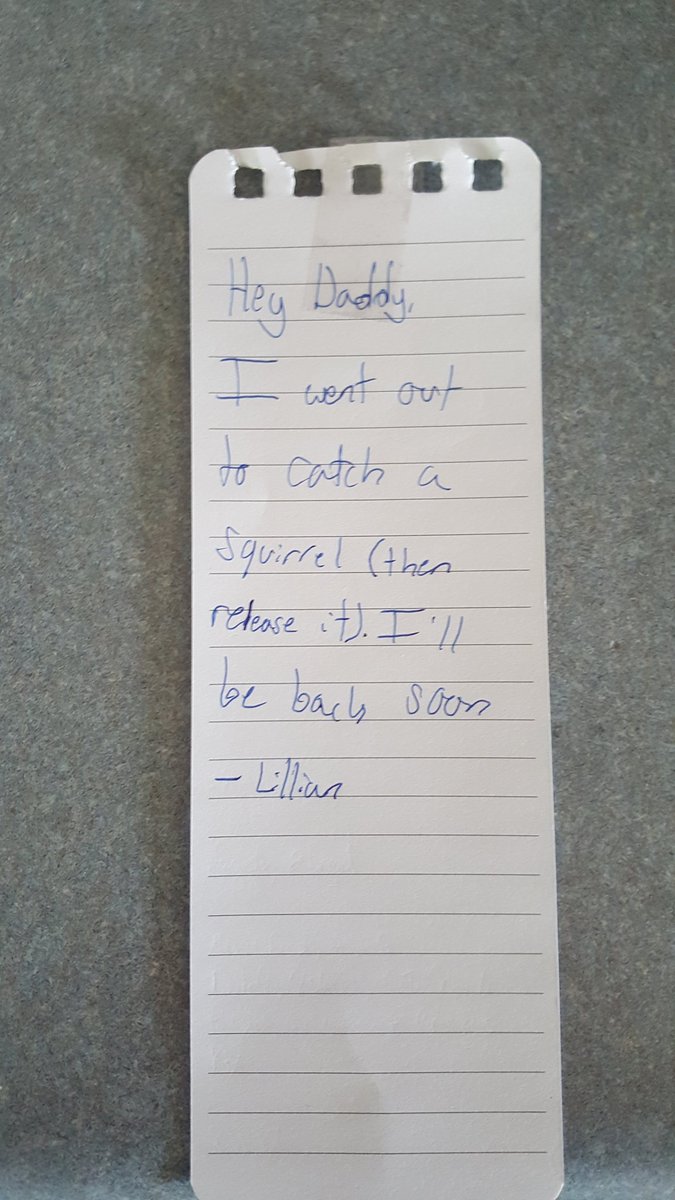 Hey Daddy,
I went out
to catch a
squirrel (then
release it). I'll
be back soon
- Lillian